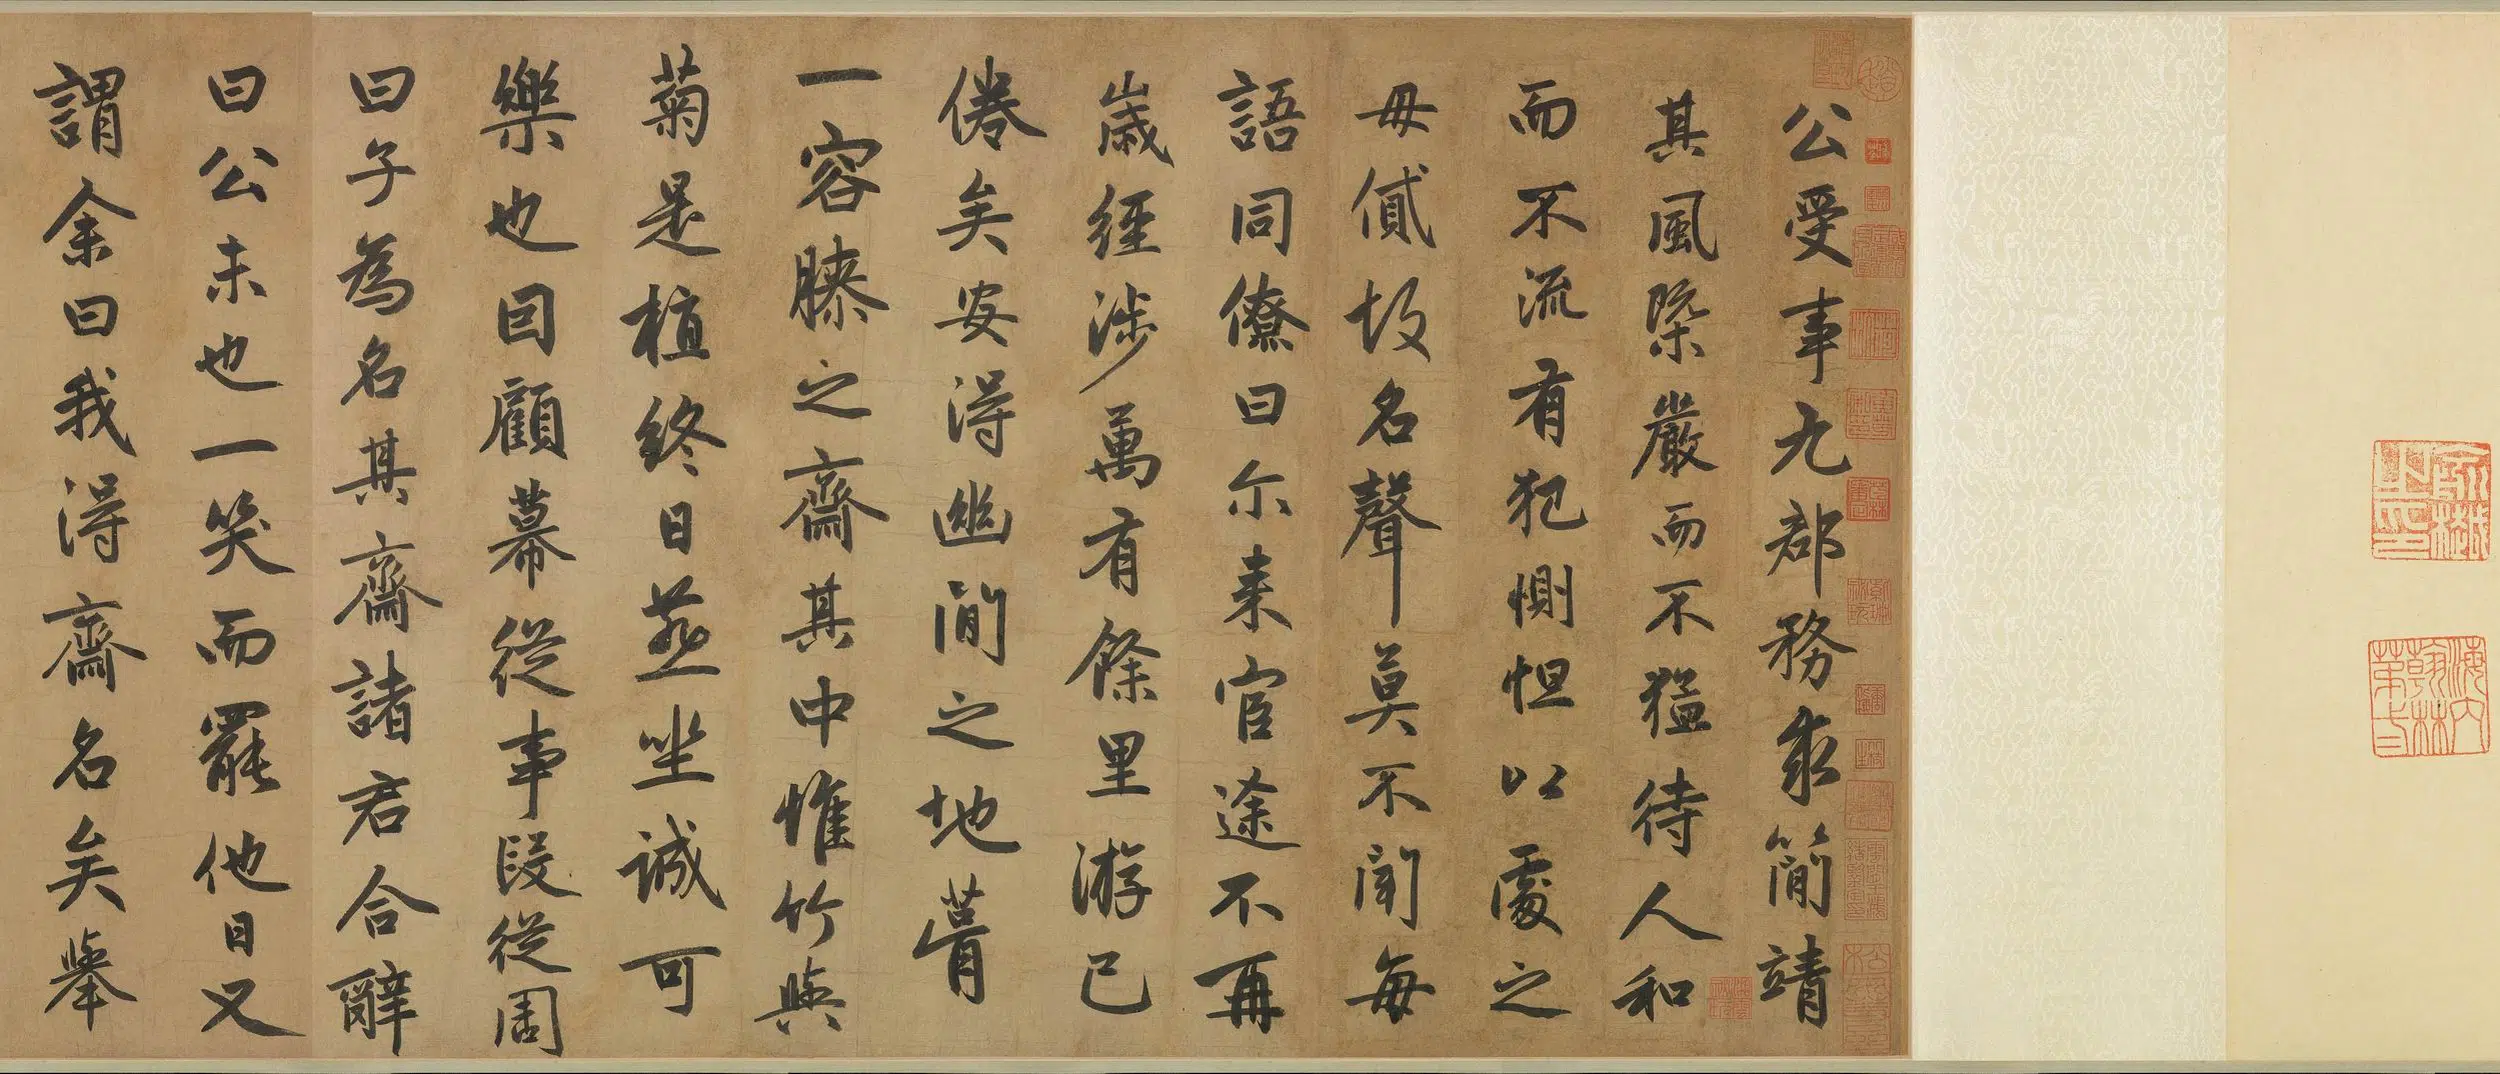 公受事九郡務求簡靖
其風槩嚴而不猛待人和
而不流有犯惻怛以處之
毋貸故名聲莫不聞每
語同僚曰尓来官途不再
歲經涉萬有餘里游已
倦矣安得幽閒之地葺
一容膝之齋其中惟竹與
菊是植終日燕坐誠可
樂也囙顧幕從事段從周
曰子為名其齋諸君合辭
曰公未也一笑而罷他日又
謂余曰我得齋名矣舉